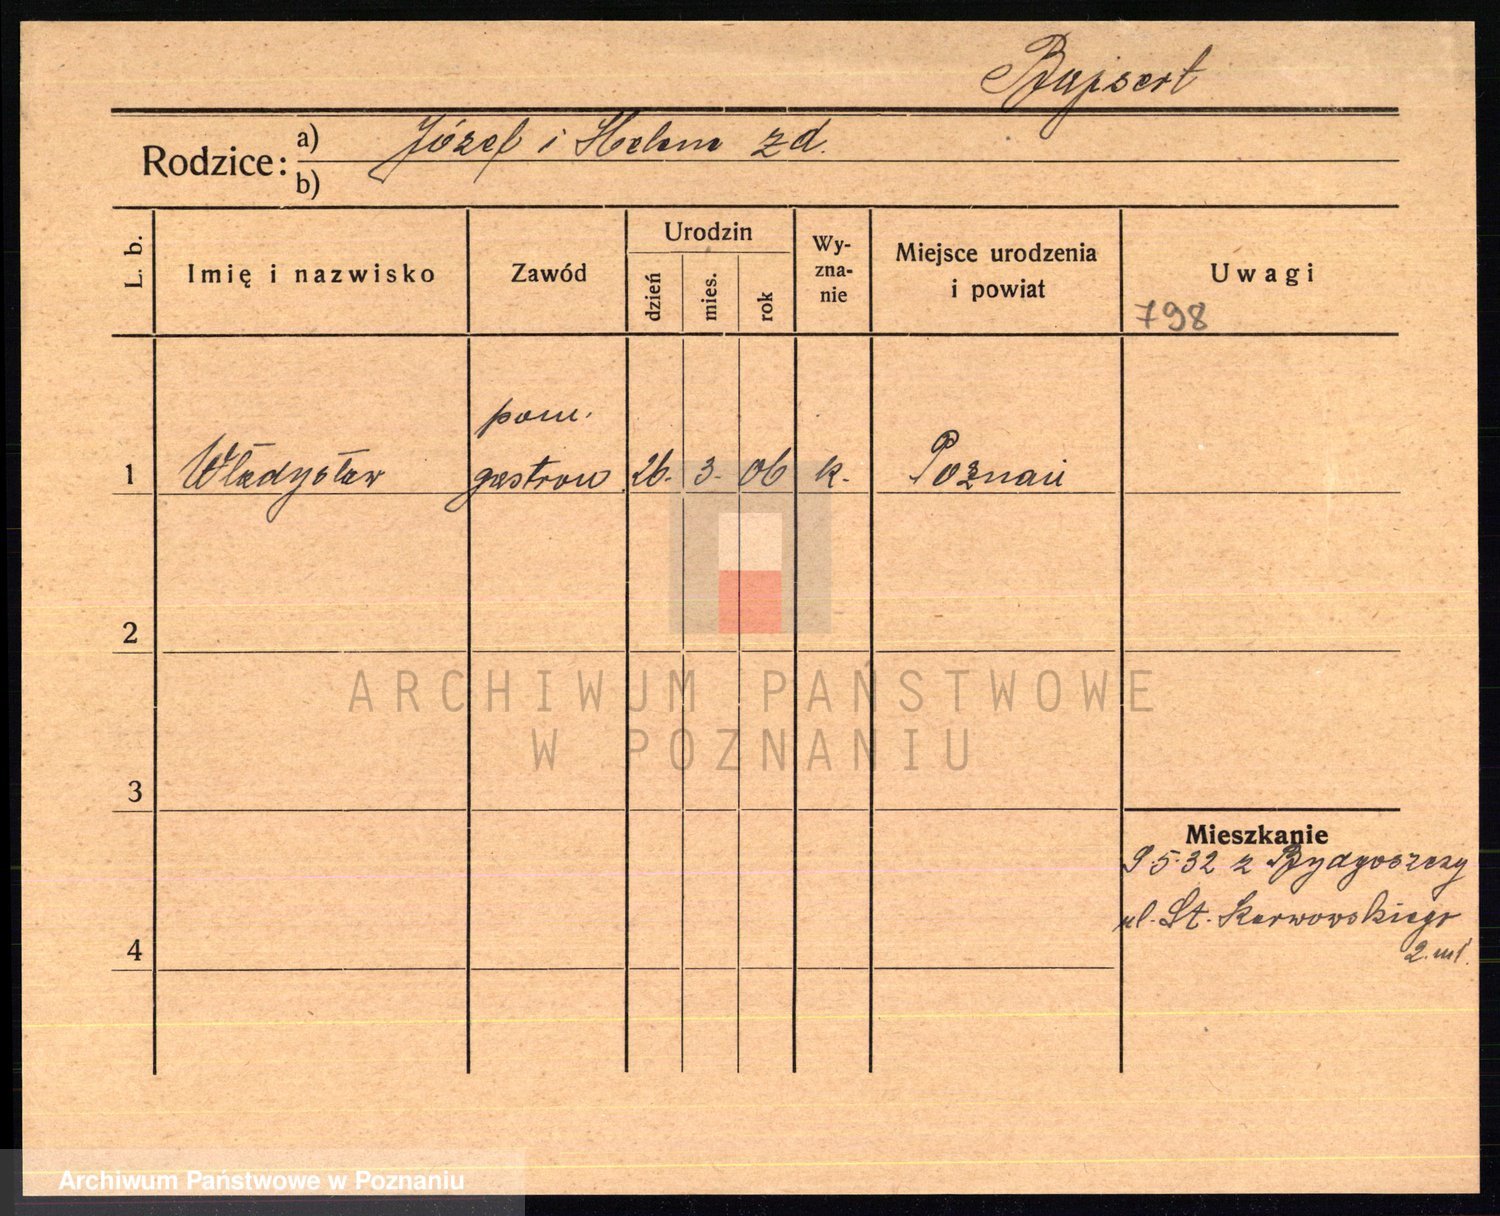 Bajsert
Rodzice: a) Józef i Helena zd.
b)
L. b.
Imię i nazwisko
Zawód
Urodzin
dzień
mies.
rok
Wy-
zna-
nie
Miejsce urodzenia
i powiat
Uwagi
798
pom.
1 Władysław gastron 26. 3. 06 k. Poznań
2
3
4
Mieszkanie
9.5.32 z Bydgoszczy
ul. St. Karwowskiego
2. m1.
ARCHIWUM PAŃSTWOWE
W POZNANIU
Archiwum Państwowe w Poznaniu